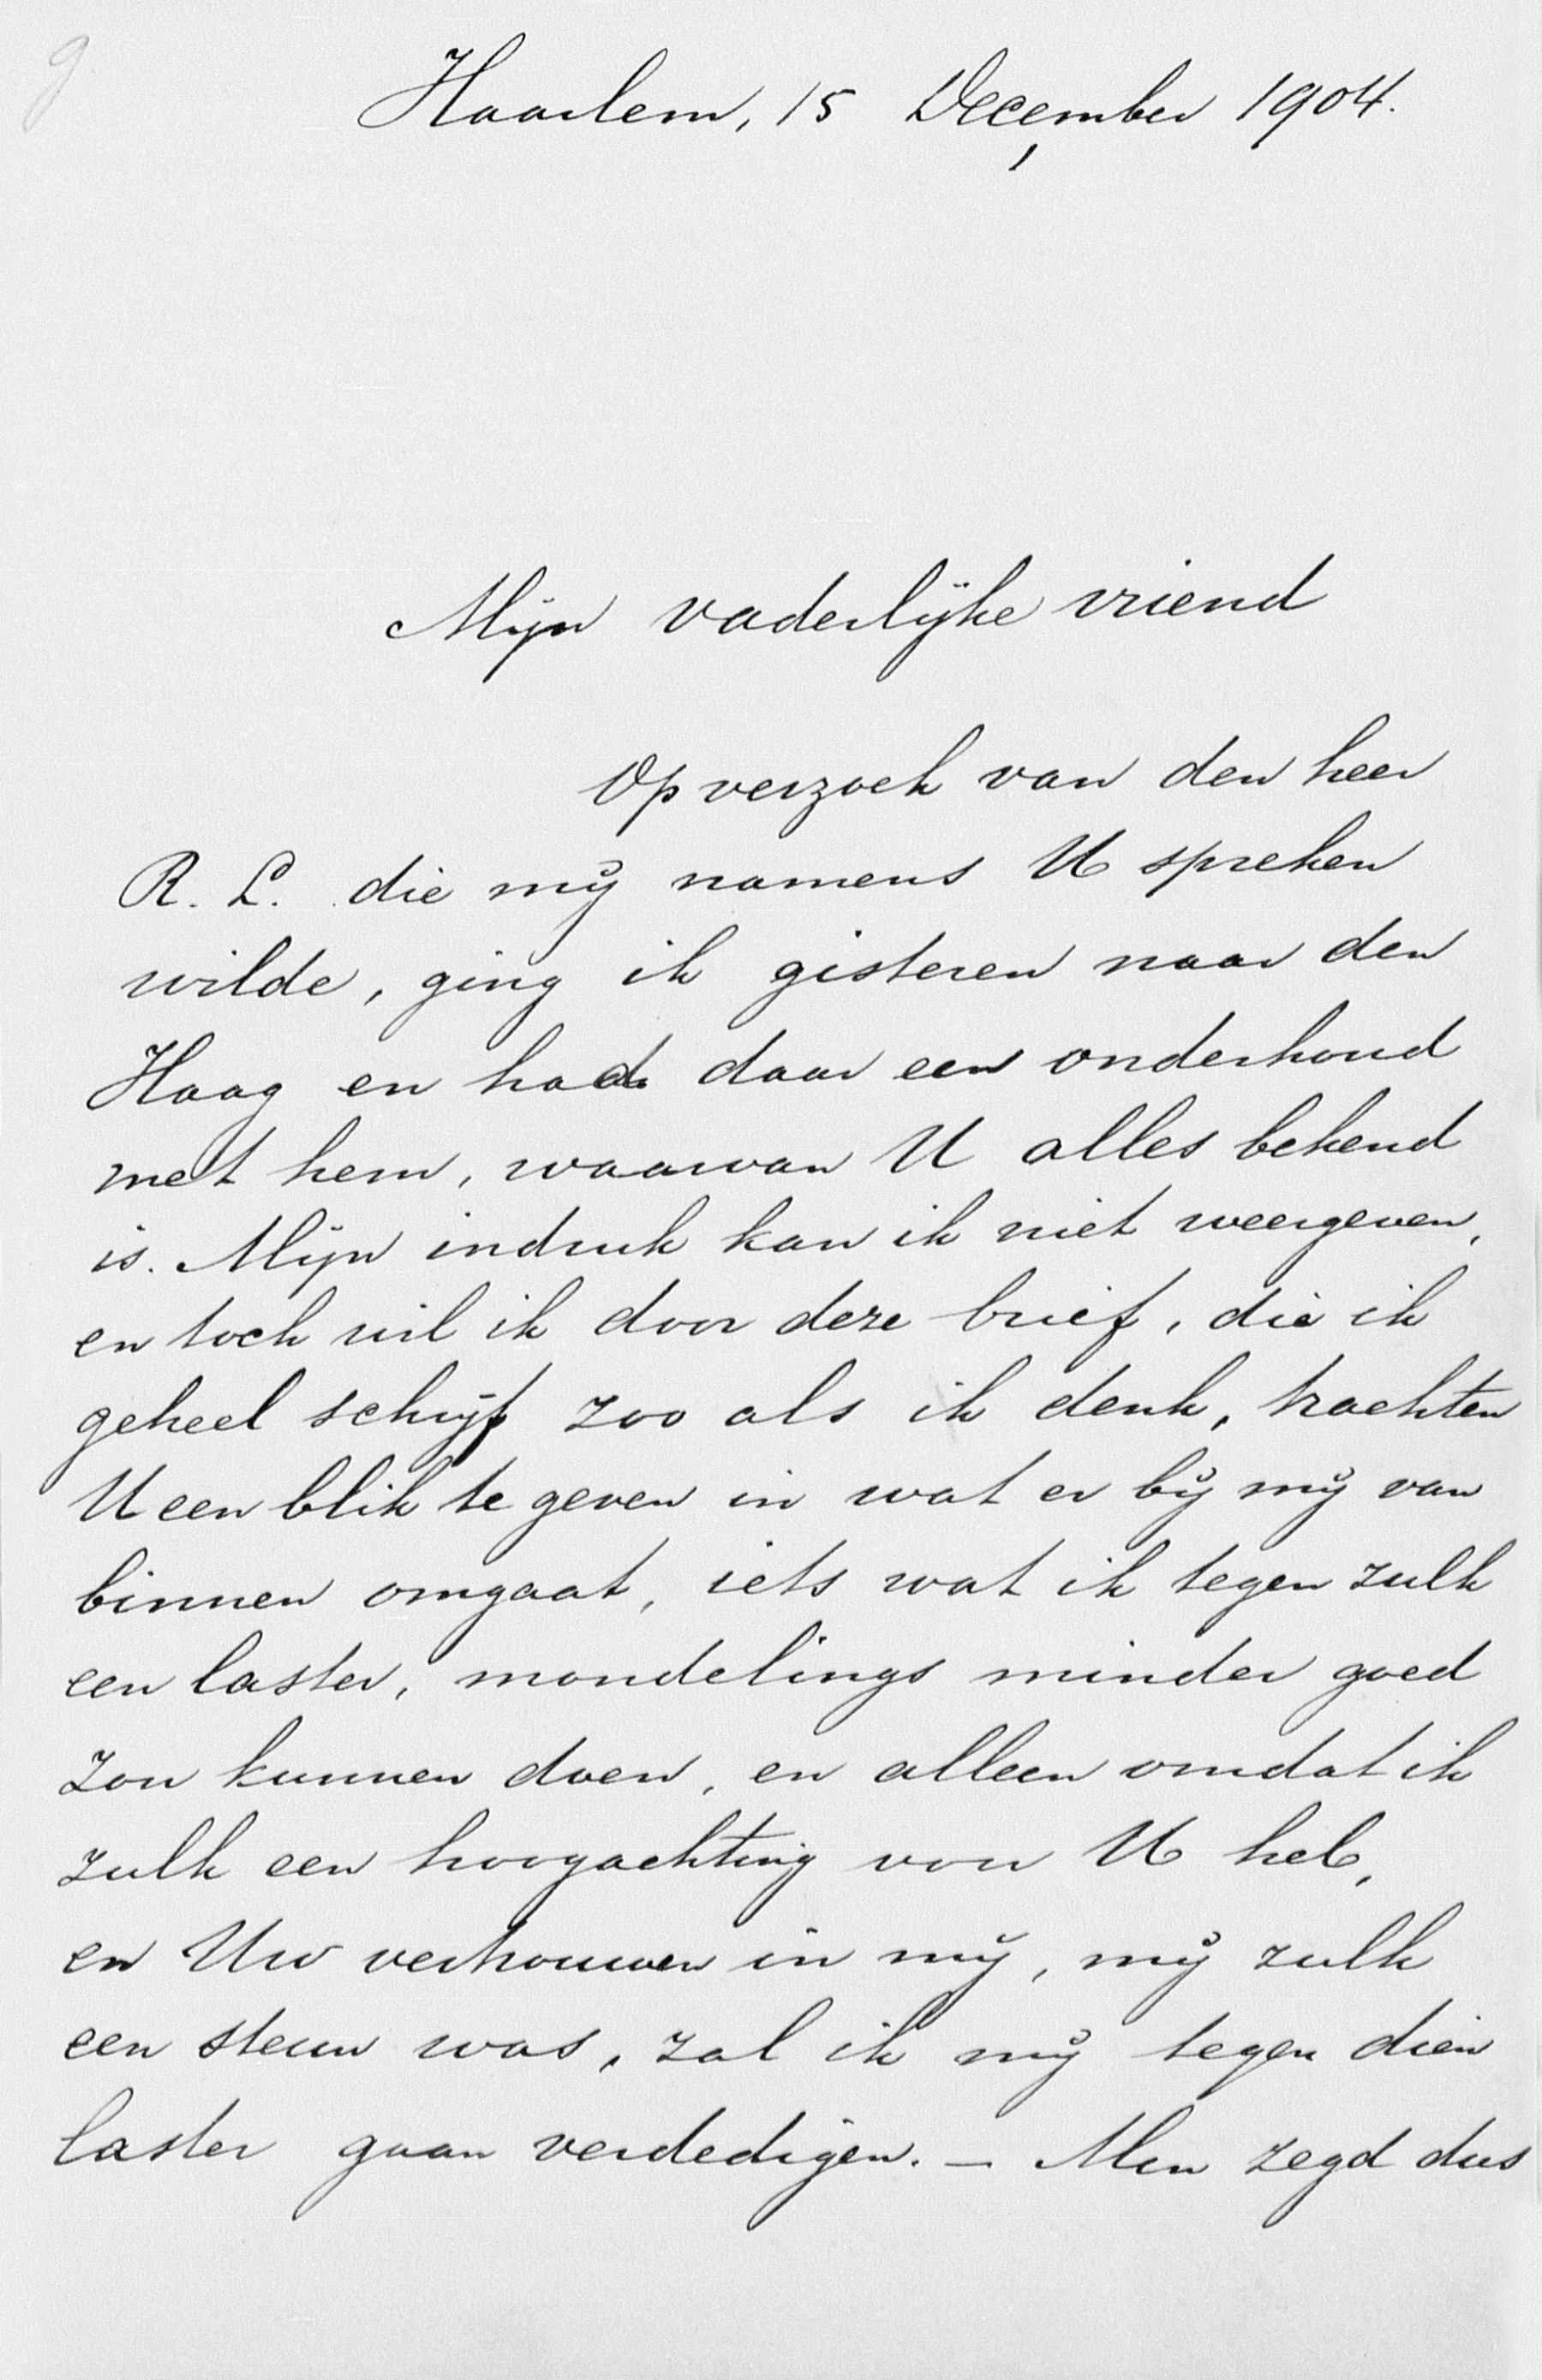 g
Haarlem, 15 December 1904.
Mijn vaderlijke vriend
Op verzoek van den heer
R. L. die mij namens U spreken
wilde, ging ik gisteren naar den
Haag en had daar een onderhoud
met hem, waarvan U alles bekend
is. Mijn indruk kan ik niet weergeven,
en toch wil ik door deze brief, die ik
geheel schrijf zoo als ik denk, trachten
U een blik te geven in wat er bij mij van
binnen omgaat, iets wat ik tegen zulk
een laster, mondelings minder goed
zou kunnen doen, en alleen omdat ik
zulk een hoogachting voor U heb,
en Uw vertrouwen in mij, mij zulk
een steun was, zal ik mij tegen dien
laster gaan verdedigen. — Men zegd dus